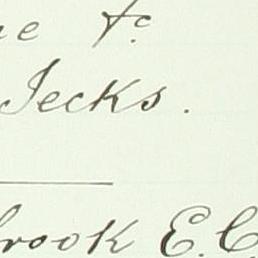 &c.
Jecks.
brook E.C.